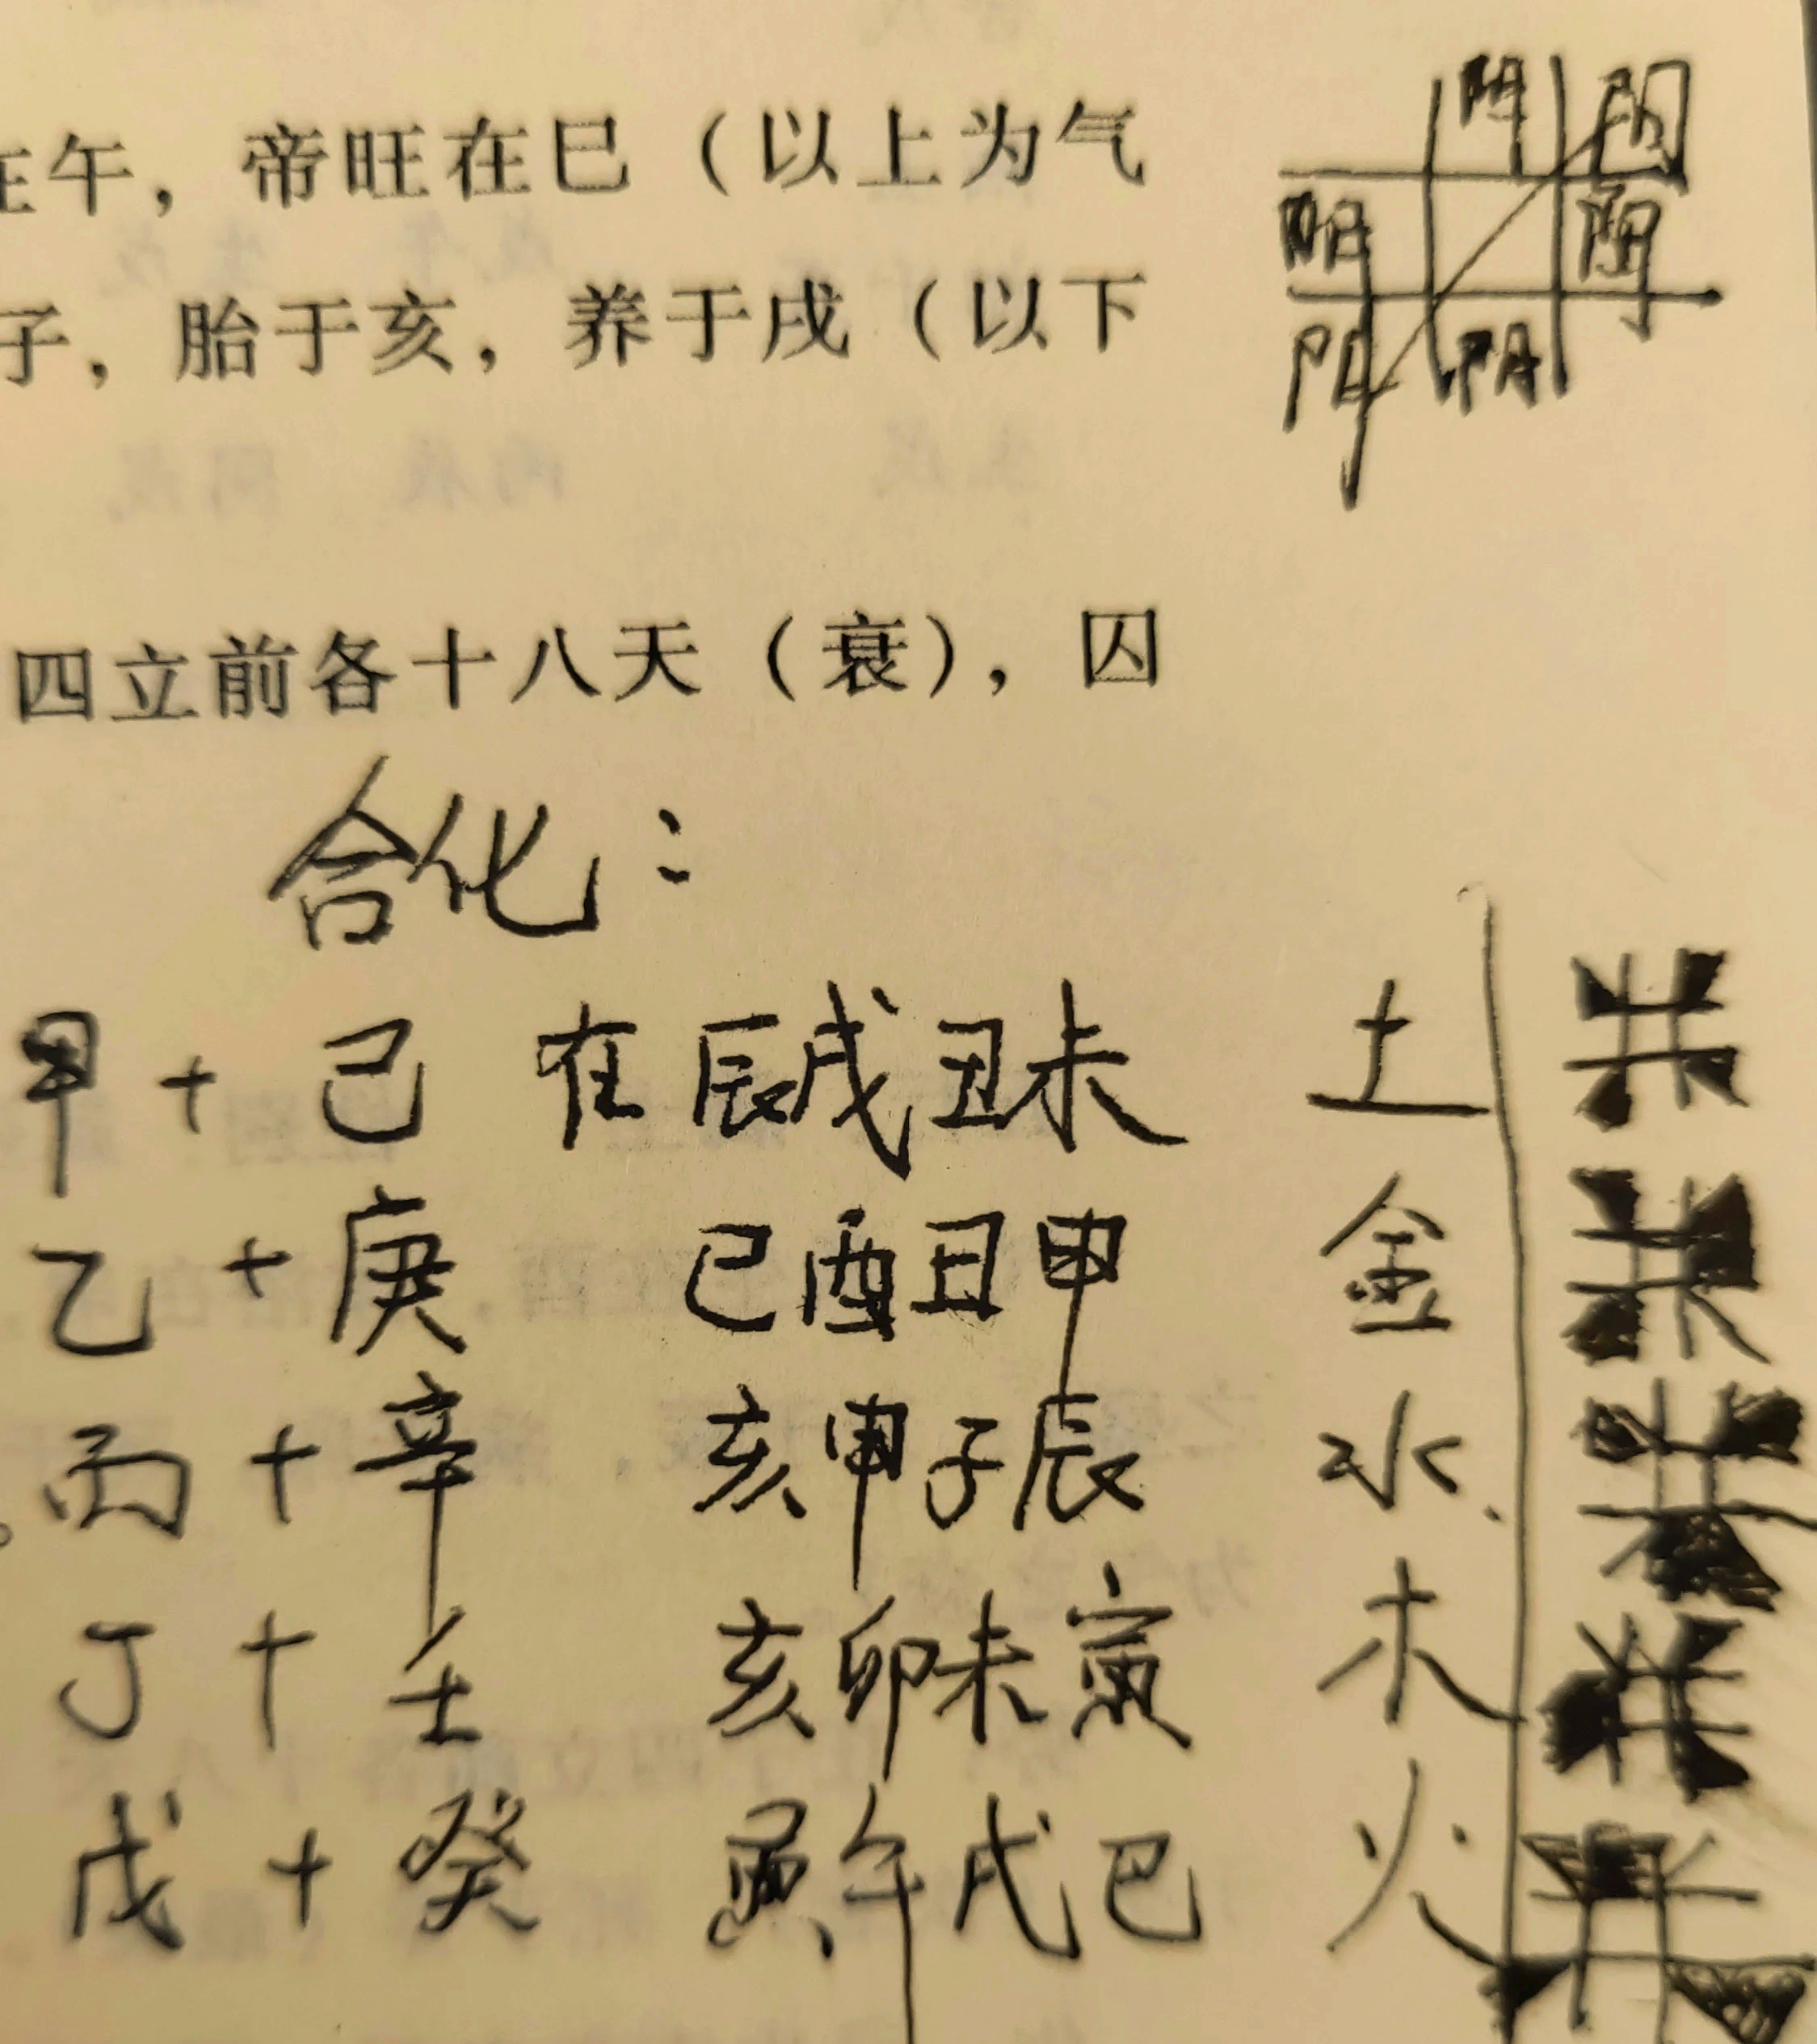 在午，帝旺在巳（以上为气
子，胎于亥，养于戌（以下
四立前各十八天（衰），囚
阴 阳
阳 阴
阳 阴
合化：
甲 + 己 在 辰戌丑未 土
乙 + 庚 已酉丑申 金
丙 + 辛 亥申子辰 水
丁 + 壬 亥卯未寅 木
戊 + 癸 寅午戌巳 火